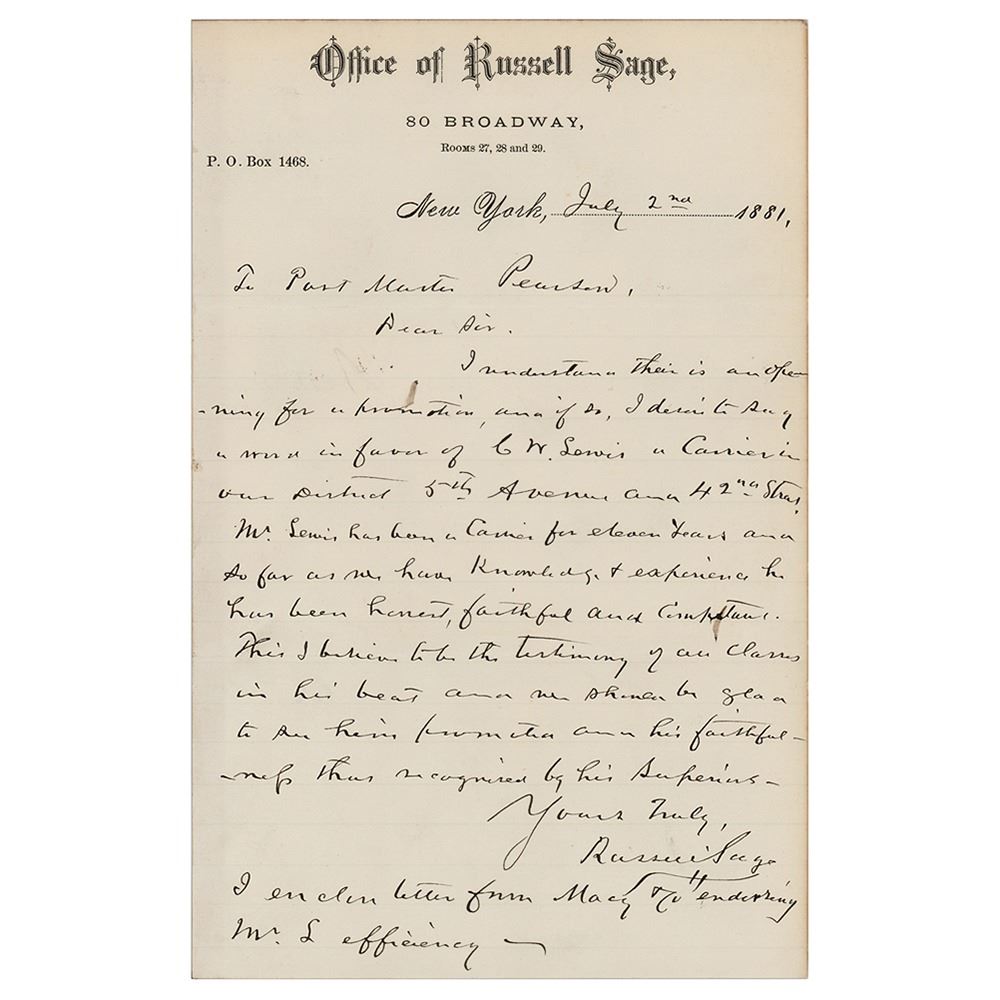 Office of Russell Sage,
80 BROADWAY,
Rooms 27, 28 and 29.
P. O. Box 1468.
New York, July 2nd 1881,
To Post Master Pearson,
Dear Sir.
I understand their is an ope
-ning for a promotion, and if so, I desire to say
a word in favor of C W. Lewis a Carrier in
our District 5th Avenue and 42nd Street,
Mr. Lewis has been a Carrier for eleven Years and
so far as we have Knowledge & experience he
has been honest, faithful and Competant.
This I believe to be the testimony of all Classes
in his beat and we should be glad
to see him promoted and his faithful-
-ness thus recognised by his Superiors -
Yours Truly,
Russell Sage
I enclose letter from Macy & Co endorsing
Mr. L efficiency -